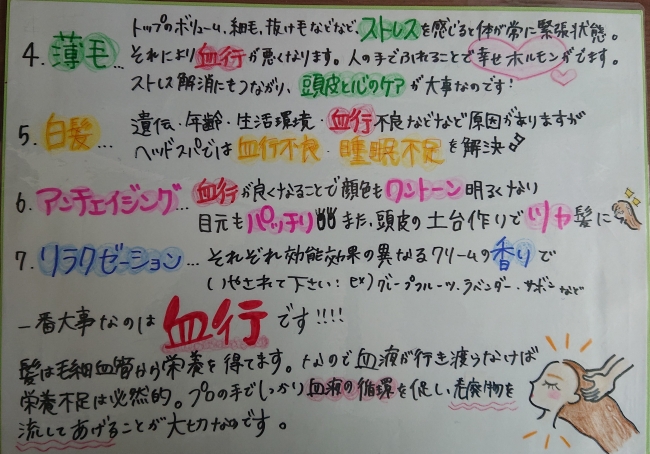 トップのボリューム、細毛、抜け毛などなど、ストレスを感じると体が常に緊張状態。
4. 薄毛… それにより血行が悪くなります。人の手でふれることで幸せホルモンがでます。
ストレス解消にもつながり、頭皮と心のケアが大事なのです!
5. 白髪… 遺伝・年齢・生活環境・血行不良などなど原因がありますが
ヘッドスパでは血行不良・睡眠不足を解決
6. アンチェイジング… 血行が良くなることで顔色もワントーン明るくなり
目元もパッチリ また、頭皮の土台作りでツヤ髪に
7. リラクゼーション… それぞれ効能効果の異なるクリームの香りで
いやされて下さい! ex)グレープフルーツ・ラベンダー・サボンなど
一番大事なのは血行です!!!!
髪は毛細血管から栄養を得てます。なので血液が行き渡らなければ
栄養不足は必然的。プロの手でしっかり血液の循環を促し、老廃物を
流してあげることが大切なのです。